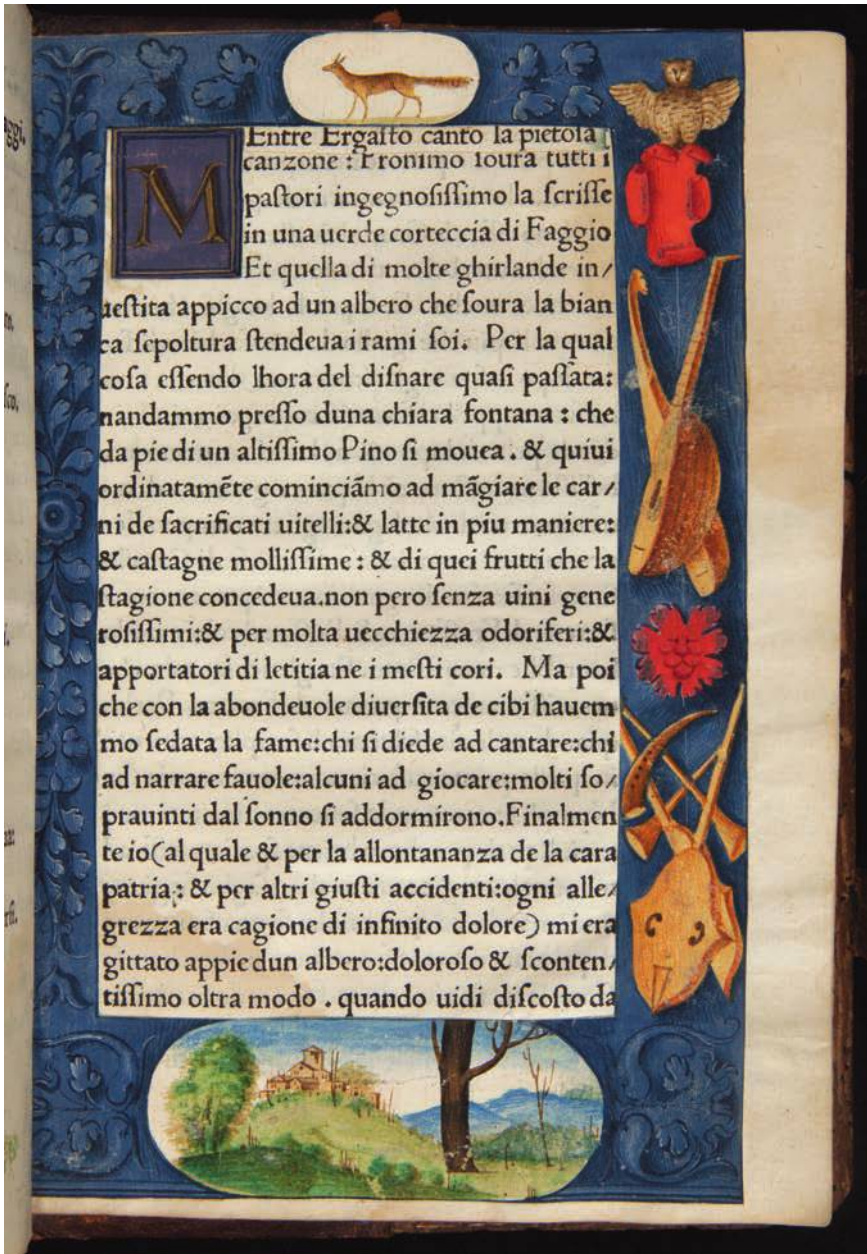 MEntre Ergaſto canto la pietoſa
canzone : Fronimo ſoura tutti i
paſtori ingegnoſiſſimo la ſcriſſe
in una uerde corteccia di Faggio
Et quella di molte ghirlande in/
ueſtita appicco ad un albero che ſoura la bian
ca ſepoltura ſtendeua i rami ſoi. Per la qual
coſa eſſendo lhora del diſnare quaſi paſſata:
nandammo preſſo duna chiara fontana : che
da pie di un altiſſimo Pino ſi mouea . & quiui
ordinatamēte cominciāmo ad māgiare le car/
ni de ſacrificati uitelli:& latte in piu maniere:
& caſtagne molliſſime : & di quei frutti che la
ſtagione concedeua.non pero ſenza uini gene
roſiſſimi:& per molta uecchiezza odoriferi:&
apportatori di letitia ne i meſti cori. Ma poi
che con la abondeuole diuerſita de cibi hauem
mo ſedata la fame:chi ſi diede ad cantare:chi
ad narrare fauole:alcuni ad giocare:molti ſo/
prauinti dal ſonno ſi addormirono.Finalmen
te io(al quale & per la allontananza de la cara
patria : & per altri giuſti accidenti:ogni alle/
grezza era cagione di infinito dolore) mi era
gittato appie dun albero:doloroſo & ſconten/
tiſſimo oltra modo . quando uidi diſcoſto da